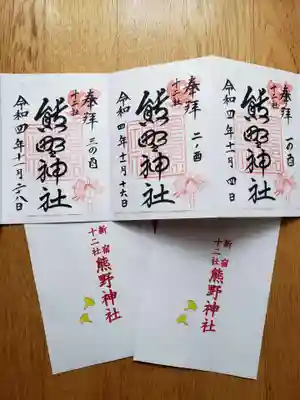 奉拝
十二社
一の酉
熊野神社
令和四年十一月四日
奉拝
十二社
二ノ酉
熊野神社
令和四年十一月十六日
奉拝
十二社
三の酉
熊野神社
令和四年十一月二八日
新宿
十二社
熊野神社
新宿
十二社
熊野神社